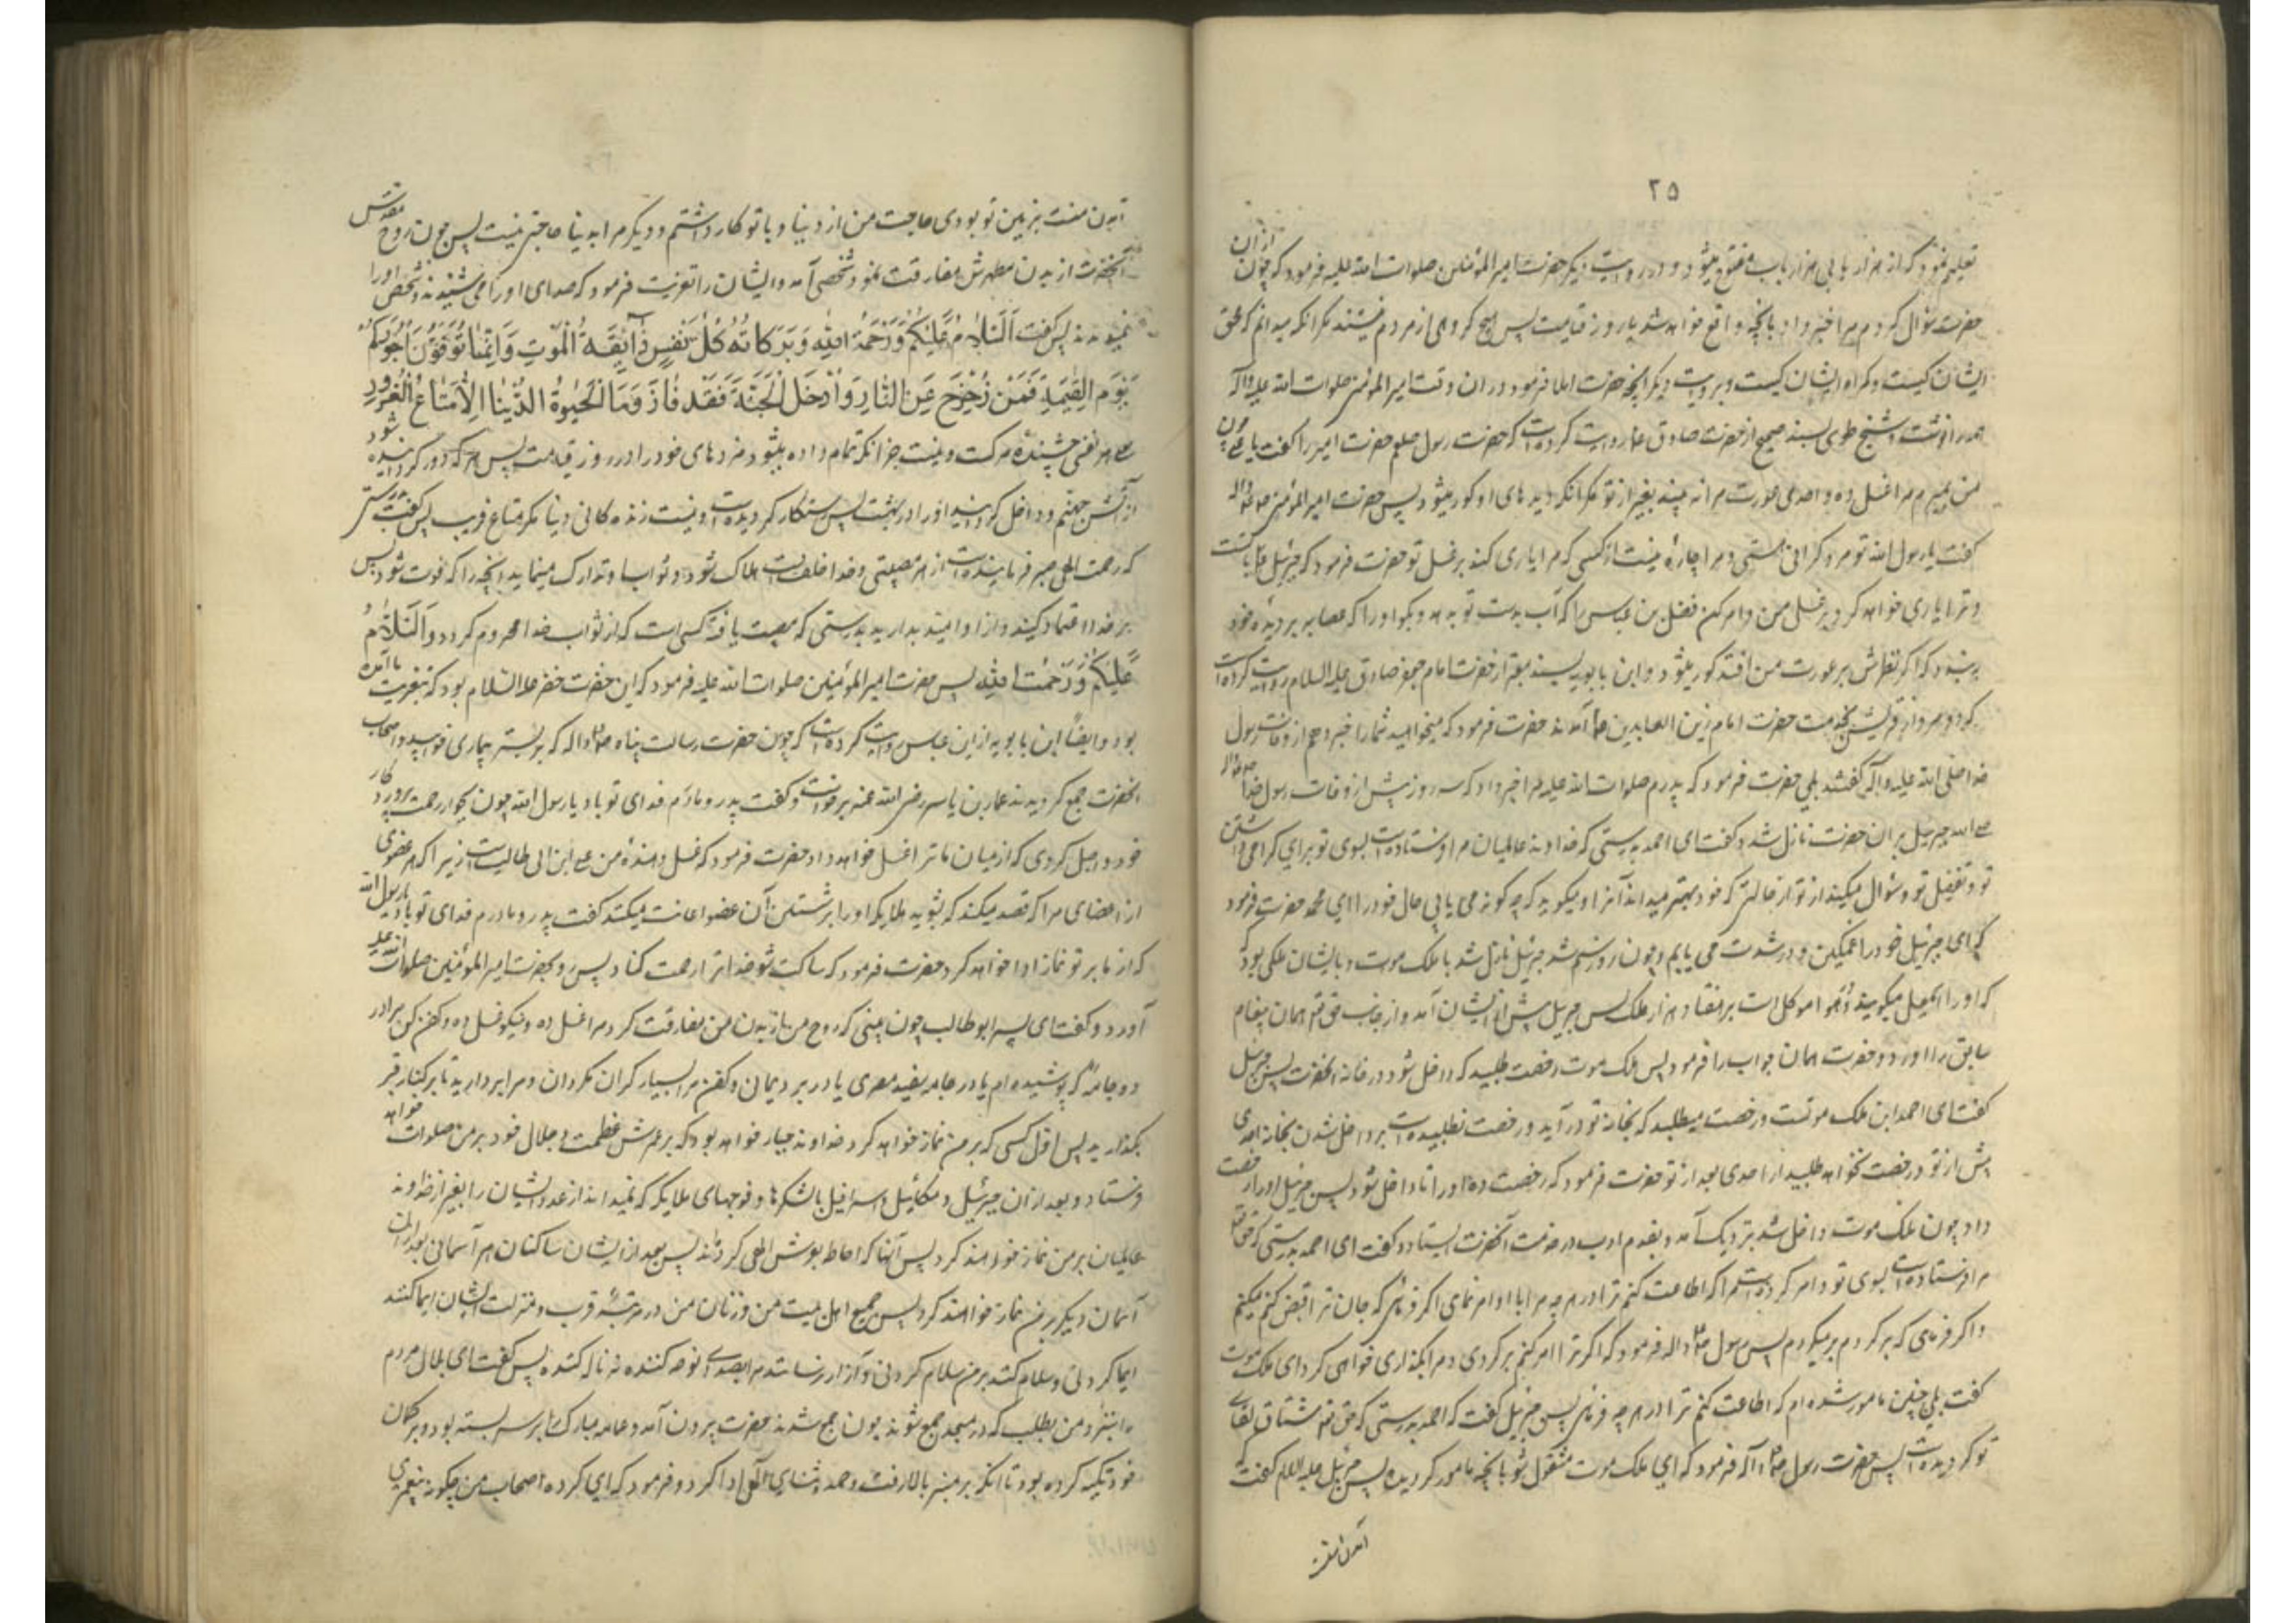 ۲۵
تعلیم نمود که از هر باب هزار باب مفتوح میشود و در روایت دیگر حضرت امیر المؤمنین صلوات الله علیه فرمود که چون از آن
حضرت سؤال کردم مرا خبر داد بانچه واقع خواهد شد تا روز قیامت پس هیچ کروهی از مردم نیستند مکر آنکه میدانم که محق
ایشان کیست و کمراه ایشان کیست و بروایت دیکر آنچه حضرت املا فرمود در آن وقت امیر المؤمنین صلوات الله علیه و آله
همه را نوشت و شیخ طوسی بسند صحیح از حضرت صادق ع روایت کرده است که حضرت رسول صلعم حضرت امیر را کفت یا علی چون
من بمیرم مرا غسل ده و احدی عورت مرا نه بیند بغیر از تو مکر آنکه دیده های او کور میشود پس حضرت امیر المؤمنین
کفت یا رسول الله تو مرد کرانی هستی و مرا چاره نیست از کسی که مرا یاری کند بر غسل تو حضرت فرمود که جبرئیل با تست
و ترا یاری خواهد کرد بر غسل من و امر کن فضل بن عباس را که آب بدست تو بدهد و بکو او را که عصابه بر دیده خود
به بندد که اکر نظرش بر عورت من افتد کور میشود و ابن بابویه بسند معتبر از حضرت امام جعفر صادق علیه السلام روایت کرده است
که دو مرد از قریش بخدمت حضرت امام زین العابدین ع آمدند حضرت فرمود که میخواهید شما را خبر دهم از وفات رسول
خدا صلی الله علیه و آله کفتند بلی حضرت فرمود که پدرم صلوات الله علیه مرا خبر داد که سه روز پیش از وفات رسول خدا
جبرئیل بر آن حضرت نازل شد و کفت ای احمد بدرستی که خداوند عالمیان مرا فرستاده است بسوی تو برای کرامی داشتن
تو و تفضیل تو و سؤال میکند از تو از حالتی که خود بهتر میداند آنرا و میکوید که چه کونه می یابی حال خود را ای محمد حضرت فرمود
که ای جبرئیل خود را غمکین و در شدت می یابم و چون روز سیم شد جبرئیل نازل شد با ملک موت و با ایشان ملکی بود که
که او را اسمعیل میکویند و او موکل است بر هفتاد هزار ملک پس جبرئیل پیش از ایشان آمد و از جانب حق تعالی همان پیغام
سابق را آورد و حضرت همان جواب را فرمود پس ملک موت رخصت طلبید که داخل شود در خانه آنحضرت پس جبرئیل
کفت ای احمد این ملک موتست و رخصت میطلبد که بخانه تو در آید و رخصت نطلبیده است بر داخل شدن بخانه احدی
پیش از تو و رخصت نخواهد طلبید از احدی بعد از تو حضرت فرمود که رخصت ده او را تا داخل شود پس جبرئیل او را رخصت
داد چون ملک موت داخل شد نزدیک آمد و بقدم ادب در خدمت آنحضرت ایستاد و کفت ای احمد بدرستی که حق تعالی
مرا فرستاده است بسوی تو و امر کرده است مرا که اطاعت کنم ترا در هر چه مرا بان امر نمائی اکر فرمائی که جان ترا قبض کنم میکنم
و اکر فرمائی که بر کردم بر میکردم پس رسول ص و اله فرمود که اکر ترا امر کنم بر کردی و مرا بکذاری خواهی کرد ای ملک موت
کفت بلی چنین مامور شده ام که اطاعت کنم ترا در هر چه فرمائی پس جبرئیل کفت که احمد بدرستی که حق تعالی مشتاق لقای
تو کردیده است پس حضرت رسول ص و آله فرمود که ای ملک موت مشغول شو بانچه مامور کردیده پس جبرئیل علیه السلام کفت که
آمدن منست
آمدن منست بزمین تو بودی حاجت من از دنیا و با تو کار داشتم و دیکر مرا بدنیا حاجتی نیست پس چون روح مقدس
آنحضرت از بدن مطهرش مفارقت نمود شخصی آمد و ایشان را تعزیت فرمود که صدای او را می شنیدند و شخص او را
نمیدیدند پس کفت اَلسَّلامُ عَلَيْكُمْ وَرَحْمَةُ اللهِ وَبَرَكاتُهُ كُلُّ نَفْسٍ ذائِقَةُ الْمَوْتِ وَاِنَّما تُوَفَّوْنَ اُجُورَكُمْ
يَوْمَ الْقِيمَةِ فَمَنْ زُحْزِحَ عَنِ النّارِ وَاُدْخِلَ الْجَنَّةَ فَقَدْ فازَ وَمَا الْحَيوةُ الدُّنْيا اِلّا مَتاعُ الْغُرُورِ
هر نفسی چشنده مرکست و نیست جز آنکه تمام داده میشود مزدهای خود را در روز قیامت پس هر که دور کردانیده شود
از آتش جهنم و داخل کردانیده شود در بهشت پس رستکار کردیده است و نیست زنده کانی دنیا مکر متاع فریب پس کفت بدرستی
که رحمت الهی صبر فرماینده است از هر مصیبتی و خدا خلف است از هر که هلاک شود و تدارک مینماید آنچه را که فوت شود پس
بر خدا اعتماد کنید و از او امید بدارید بدرستی که مصیبت یافته کسی است که از ثواب خدا محروم کردد وَالسَّلامُ
عَلَيْكُمْ وَرَحْمَتُ اللهِ پس حضرت امیر المؤمنین صلوات الله علیه فرمود که این حضرت خضر علیه السلام بود که بتعزیت ما آمده
بود و ایضاً ابن بابویه از ابن عباس روایت کرده است که چون حضرت رسالت پناه ص و اله که بر بستر بیماری خوابید و اصحاب
آنحضرت جمع کردیدند عمار بن یاسر رضی الله عنه برخواست و کفت پدر و مادرم فدای تو باد یا رسول الله چون بجوار رحمت پروردکار
خود واصل کردی که از میان ما ترا غسل خواهد داد حضرت فرمود که غسل دهنده من علی ابن ابی طالب است زیرا که هر عضوی
از اعضای مرا که قصد میکند که بشوید ملایکه او را بر شستن آن عضو اعانت میکنند کفت پدر و مادرم فدای تو باد یا رسول الله
که از ما بر تو نماز ادا خواهد کرد حضرت فرمود که ساکت شو خدا ترا رحمت کناد پس رو بحضرت امیر المؤمنین صلوات الله علیه
آورد و کفت ای پسر ابو طالب چون بینی که روح من از بدن من مفارقت کرد مرا غسل ده و نیکو غسل ده و کفن کن مرا در
دو جامه که پوشیده ام یا در جامه سفید مصری یا در برد یمانی و کفن مرا بسیار کران مکردان و مرا بردارید تا بر کنار قبر
بکذارید پس اول کسی که بر من نماز خواهد کرد خداوند جبار خواهد بود که بر عرش عظمت و جلال خود بر من صلوات خواهد
فرستاد و بعد از آن جبرئیل و میکائیل و اسرافیل با لشکرها و فوجهای ملایکه که نمیداند عدد ایشان را بغیر از خداوند
عالمیان بر من نماز خواهند کرد پس آنها که احاطه بعرش الهی کرده اند پس بعد از ایشان ساکنان هر آسمانی بعد از اهل
آسمان دیکر بر من نماز خواهند کرد پس جمیع اهل بیت من و زنان من در مرتبه قرب و منزلت ایشان ایما کنند
ایما کردنی و سلام کنند بر من سلام کردنی و آزار نرسانند مرا بصدای نوحه کننده و نه ناله کننده پس کفت ای بلال مردم
را بنزد من بطلب که در مسجد جمع شوند چون جمع شدند حضرت بیرون آمد و عمامه مبارک را بر سر بسته بود و بر کمان
خود تکیه کرده بود تا آنکه بر منبر بالا رفت و حمد و ثنای الهی ادا کرد و فرمود که ای کروه اصحاب من چکونه پیغمبری